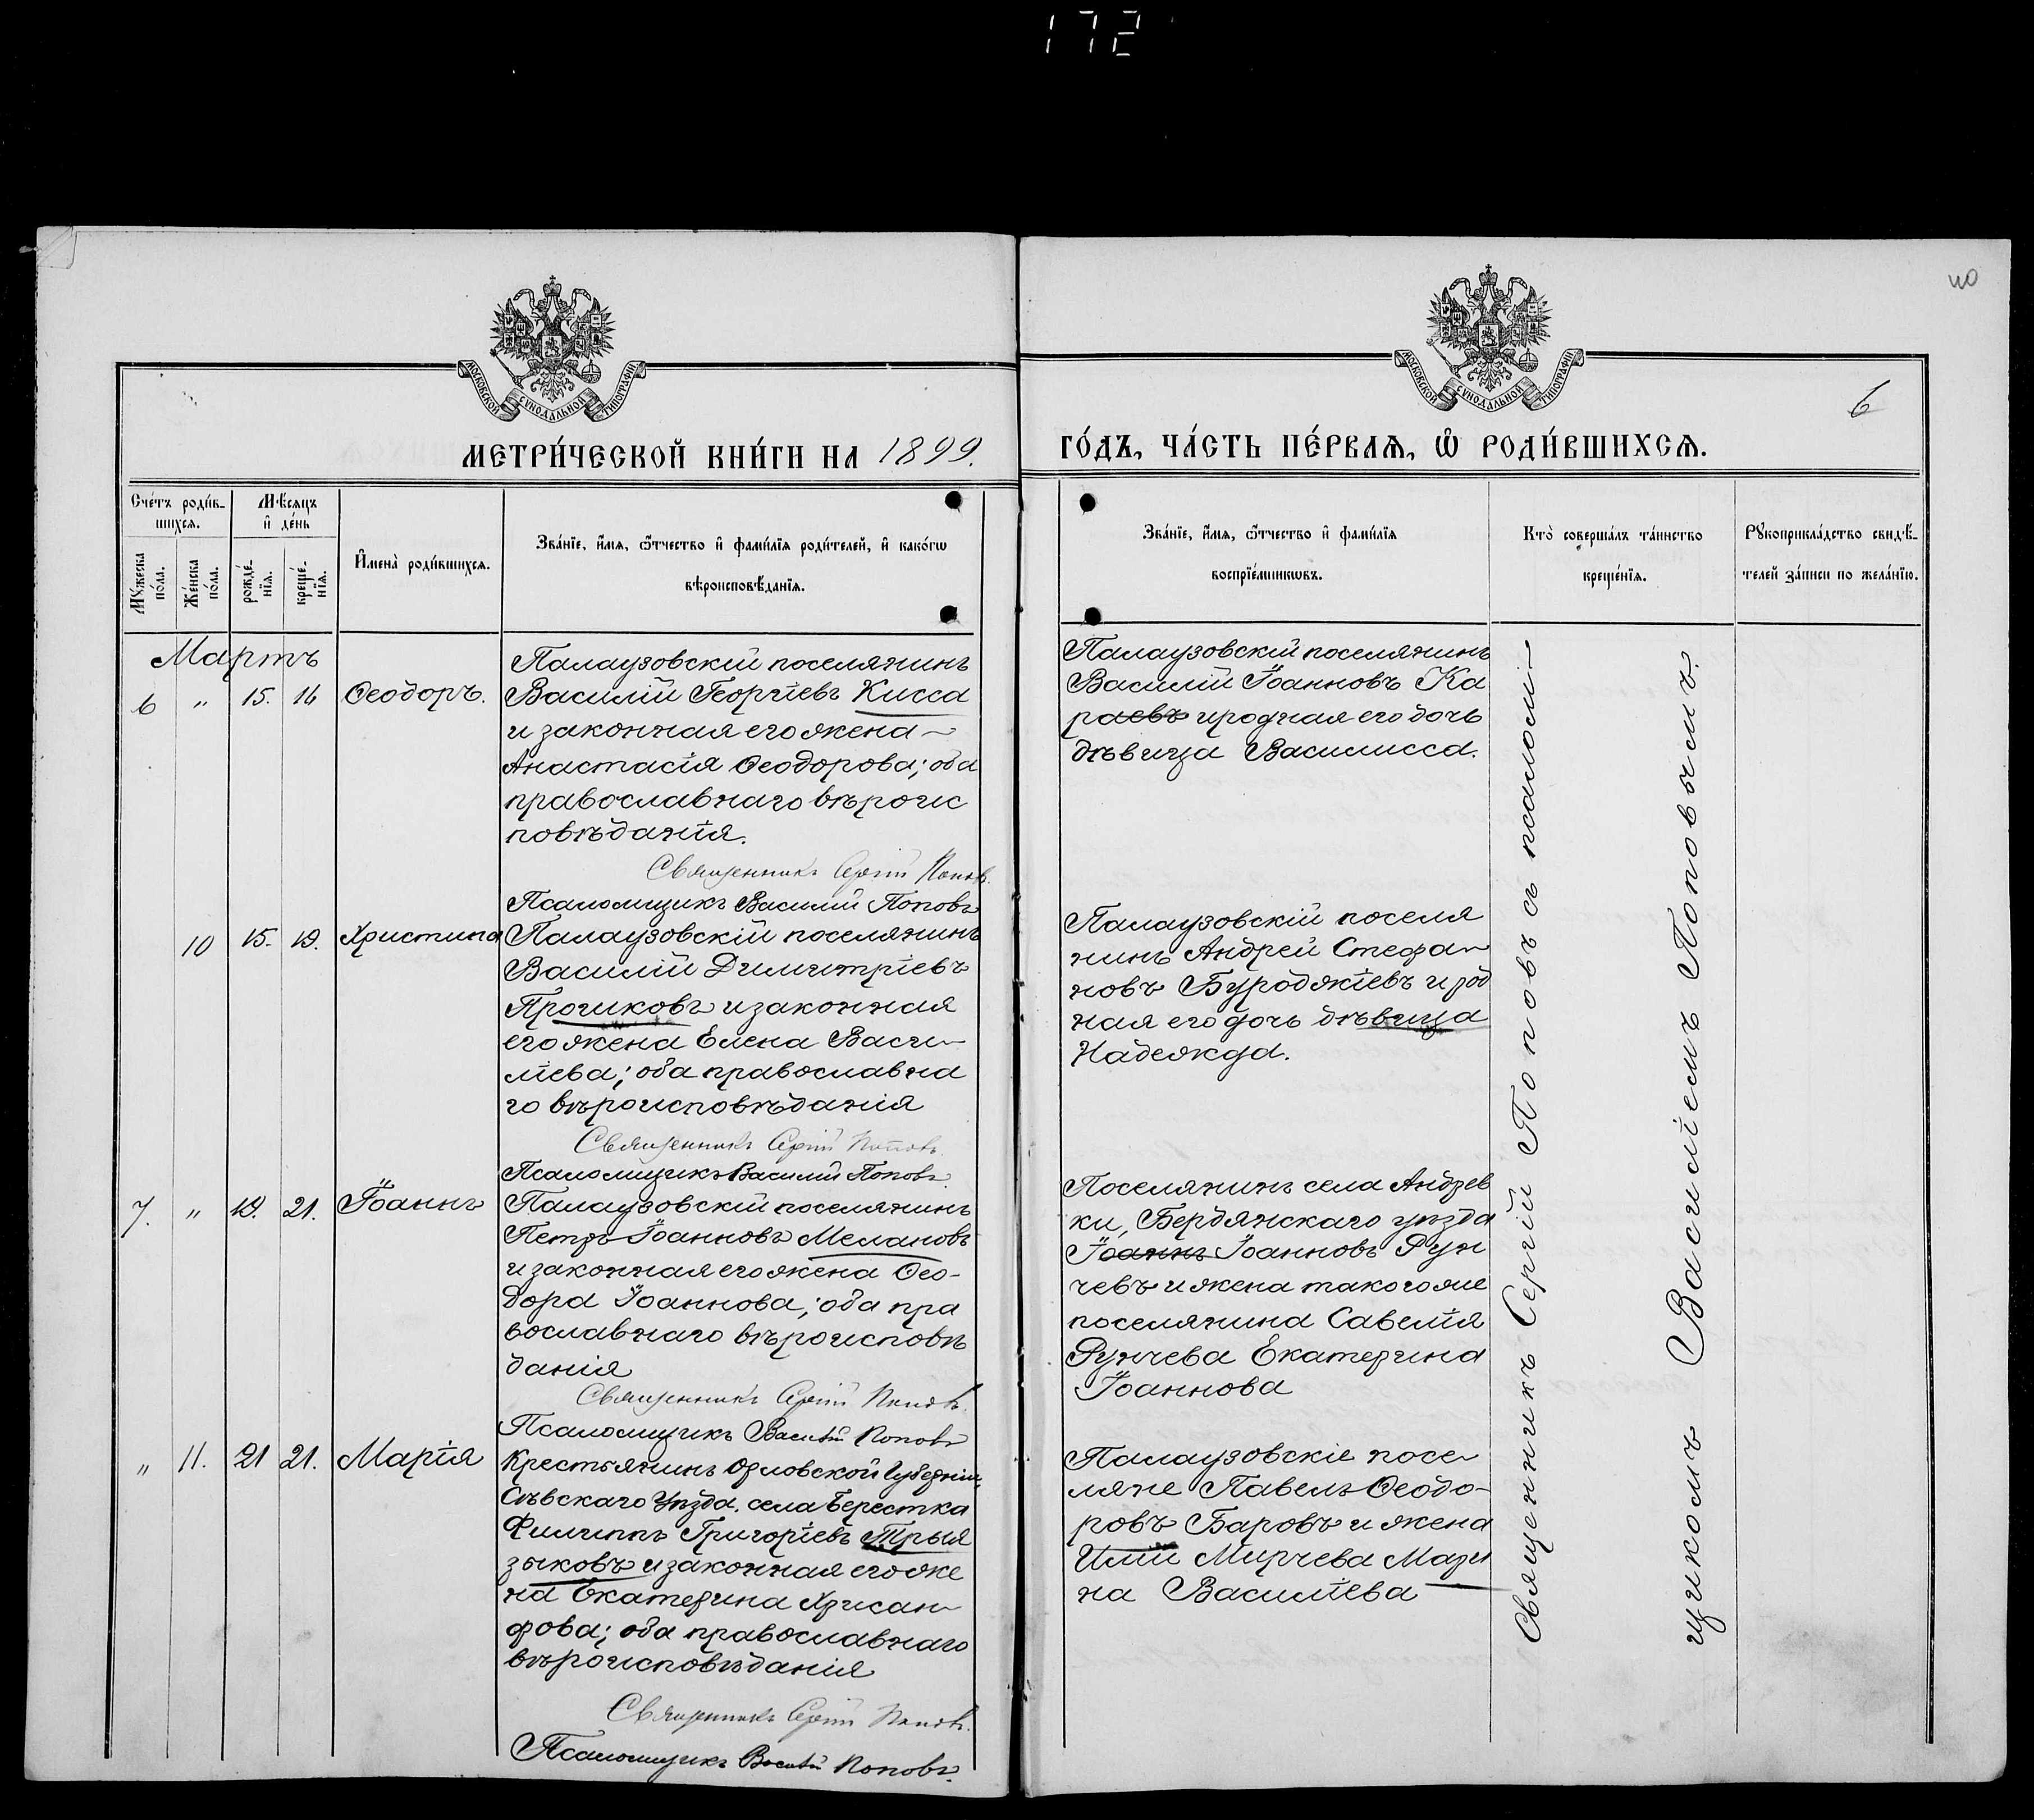 172
110
МОСКОВСКОЙ СУНОДАЛЬНОЙ ТИПОГРАФІИ
МОСКОВСКОЙ СУНОДАЛЬНОЙ ТИПОГРАФІИ
6
МЕТРИ́ЧЕСКОЙ КНИ́ГИ НА 1899.
ГО́ДЪ, ЧА́СТЬ ПЕ́РВАѦ, Ѡ҆ РОДИ́ВШИХСѦ.
Сче́тъ роди́в-
шихсѧ.
Мꙋ́жеска по́ла.
Же́нска по́ла.
Мѣ́сѧцъ
и҆ де́нь
рожде́-нїѧ.
креще́-нїѧ.
И҆мена̀ роди́вшихсѧ.
Зва́нїе, и҆́мѧ, ѻ҆́тчество и҆ фами́лїѧ роди́телей, и҆ како́гѡ
вѣроисповѣ́данїѧ.
Зва́нїе, и҆́мѧ, ѻ҆́тчество и҆ фами́лїѧ
воспрїе́мникѡвъ.
Кто̀ соверша́лъ та́инство
креще́нїѧ.
Рꙋкоприкла́дство свидѣ́-
телей за́писи по жела́нїю.
Мартъ
6 " 15. 16 Ѳеодоръ.
Палаузовскій поселянинъ
Василій Георгіевъ Кисса
и законная его жена
Анастасія Ѳеодорова; оба
православнаго вѣроис
повѣданія.
Священникъ Сергій Поповъ.
Псаломщикъ Василій Поповъ
Палаузовскій поселянинъ
Василій Іоанновъ Ка
раевъ и родная его дочь
дѣвица Василисса.
10 15. 19. Христина
Палаузовскій поселянинъ
Василій Димитріевъ
Трочиковъ и законная
его жена Елена Васи-
ліева; оба православна
го вѣроисповѣданія
Священникъ Сергій Поповъ.
Псаломщикъ Василій Поповъ.
Палаузовскій поселя
нинъ Андрей Стефа-
новъ Бурoджіевъ и род
ная его дочь дѣвица
Надежда.
7. " 19. 21. Іоаннъ
Палаузовскій поселянинъ
Петръ Іоанновъ Мелановъ
и законная его жена Ѳео-
дора Іоаннова; оба пра
вославнаго вѣроисповѣ
данія
Священникъ Сергій Поповъ.
Псаломщикъ Василій Поповъ
Поселянинъ села Андрев
ки, Бердянскаго уѣзда
Іоаннъ Іоанновъ Рун
чевъ и жена такого же
поселянина Савелія
Рунчева Екатерина
Іоаннова
" 11. 21 21. Марія
Крестьянинъ Орловской Губерніи,
Сѣвскаго Уѣзда, села Берестка
Филиппъ Григоріевъ Трыя
зыковъ и законная его же
на Екатерина Хрисан-
фова; оба православнаго
вѣроисповѣданія
Священникъ Сергій Поповъ.
Псаломщикъ Василій Поповъ.
Палаузовскіе посе-
ляне Павелъ Ѳеодо-
ровъ Баровъ и жена
Иліи Мирчева Мари
на Василіева
Священникъ Сергій Поповъ съ псалом-
щикомъ Василіемъ Поповымъ.